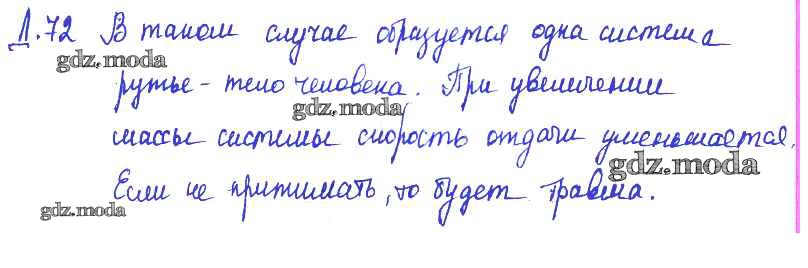 Д.72 В таком случае образуется одна система
gdz.moda
рутье - тело человека. При увеличении
gdz.moda
массы системы скорость отдачи уменьшается.
gdz.moda
Если не притимать, то будет травма.
gdz.moda